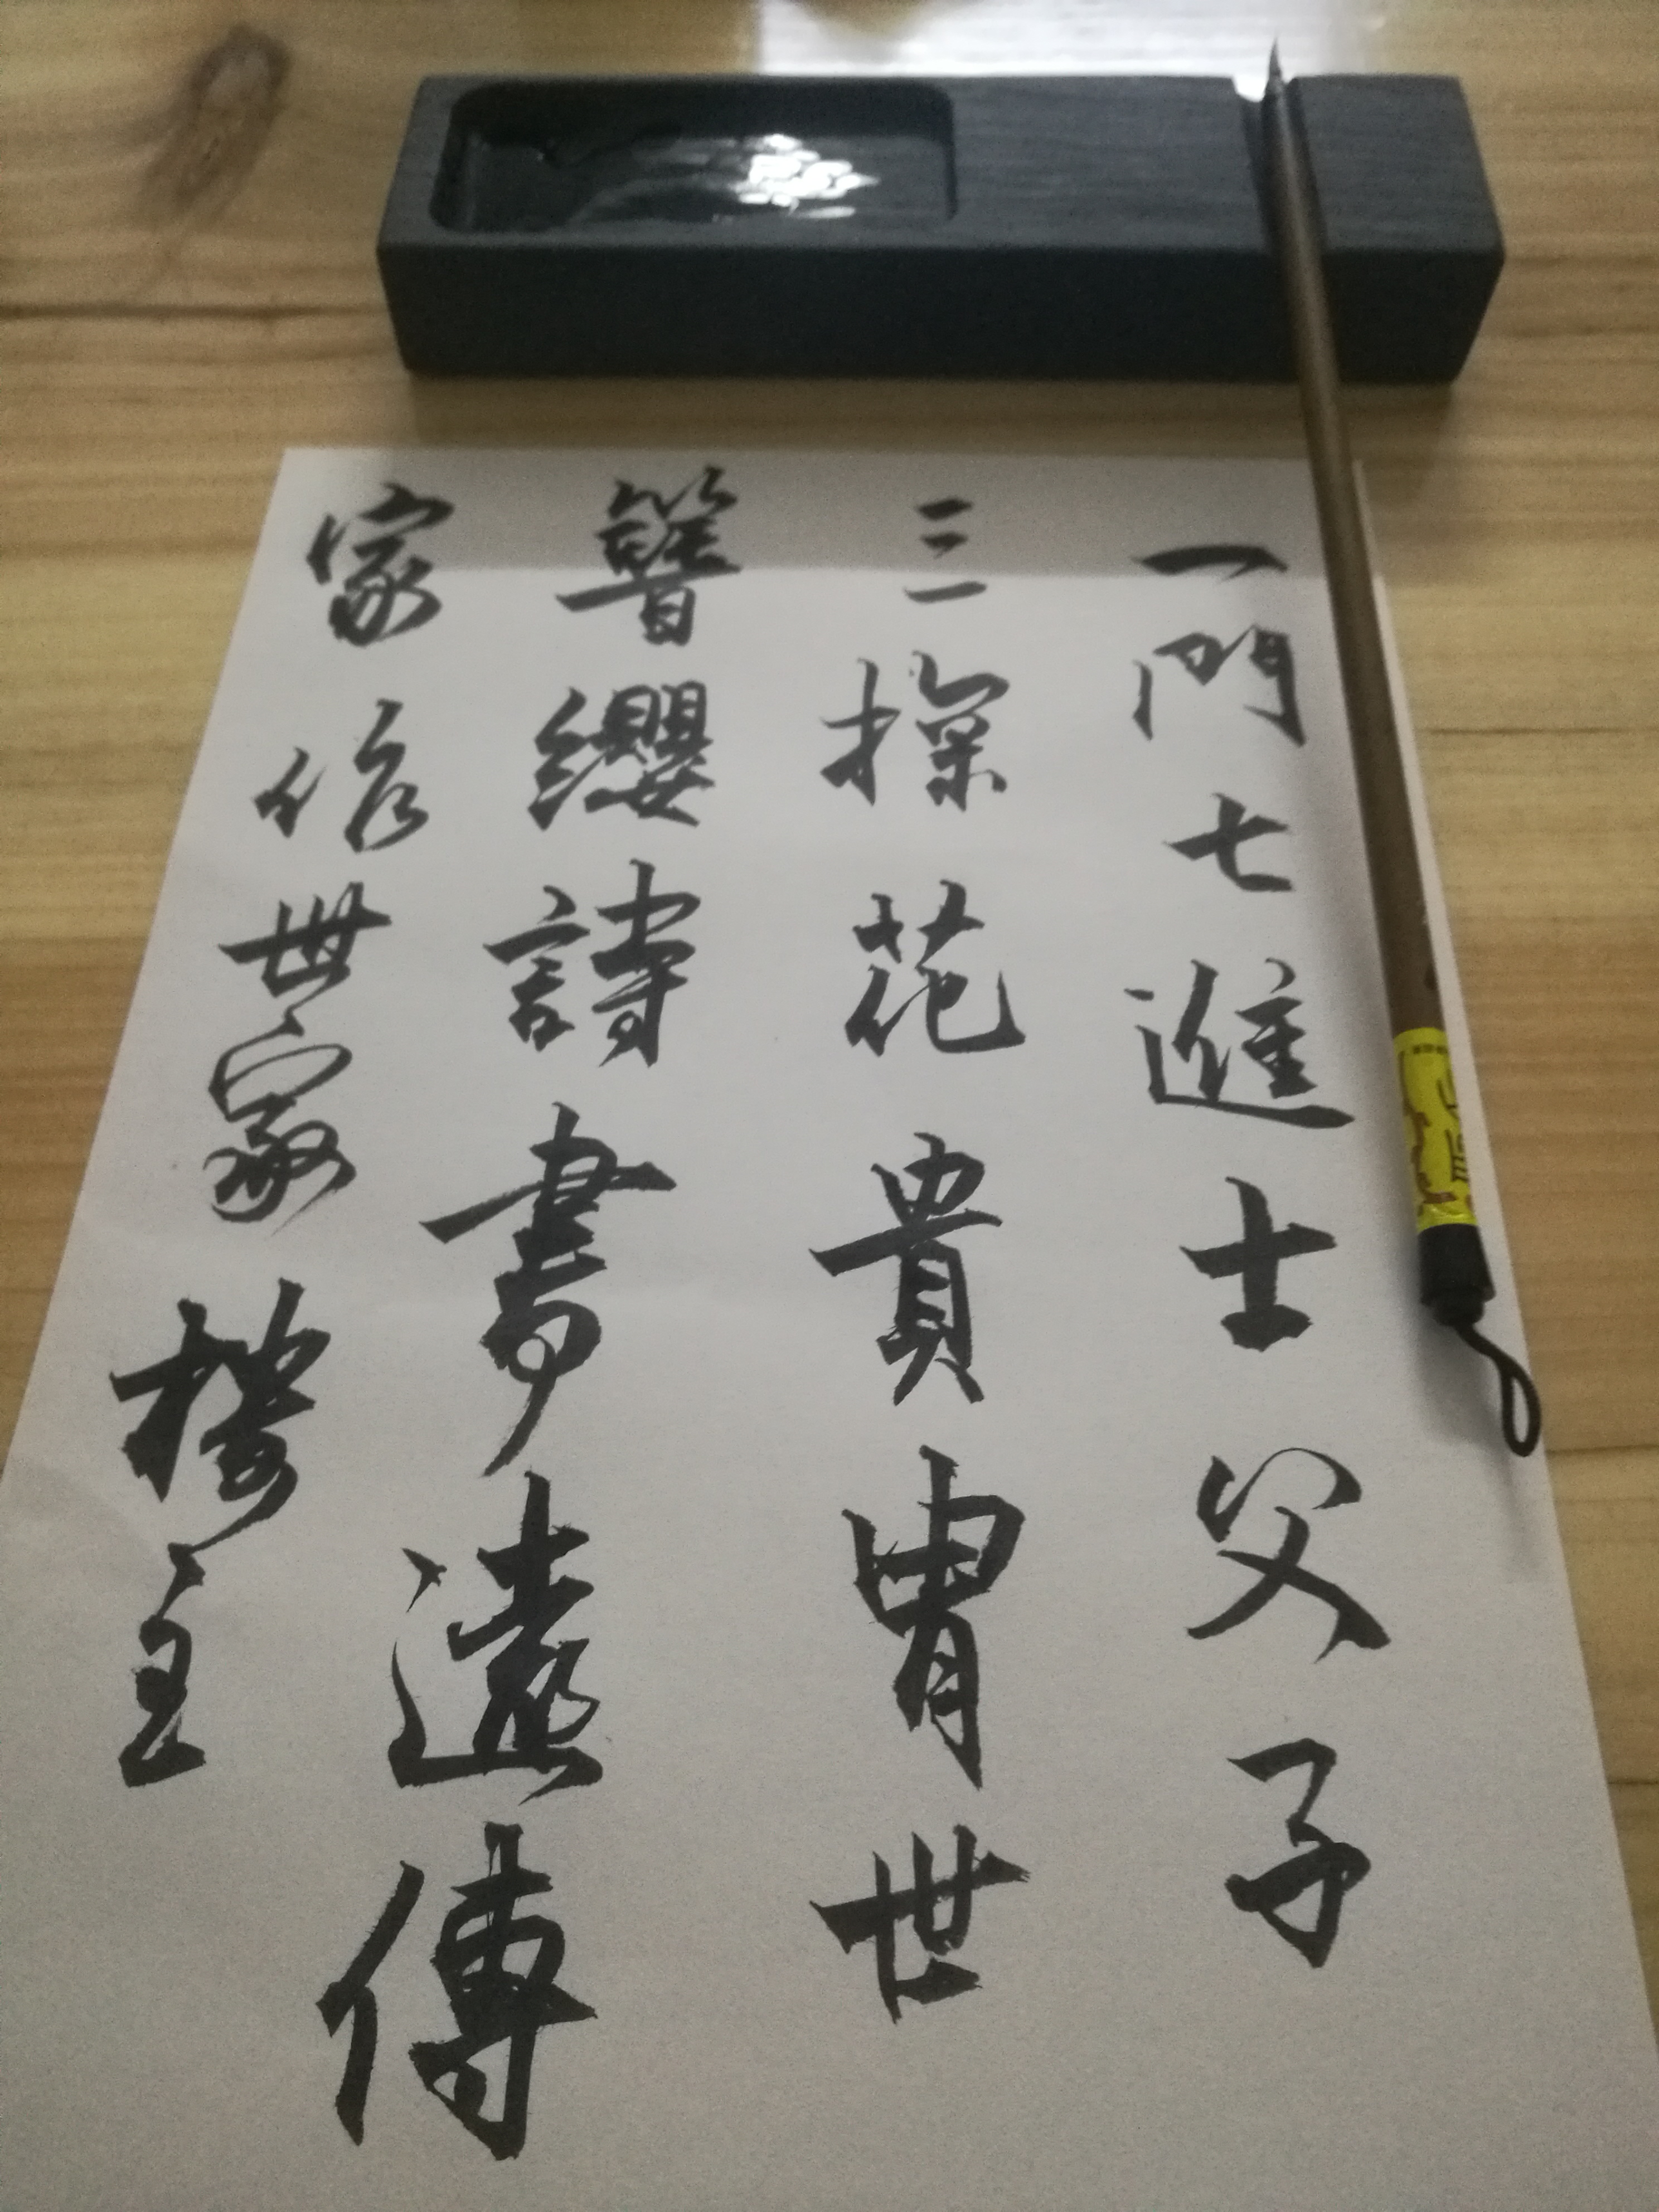 一門七進士父子
三探花貴胄世
簪纓詩書遠傳
家世家樓主